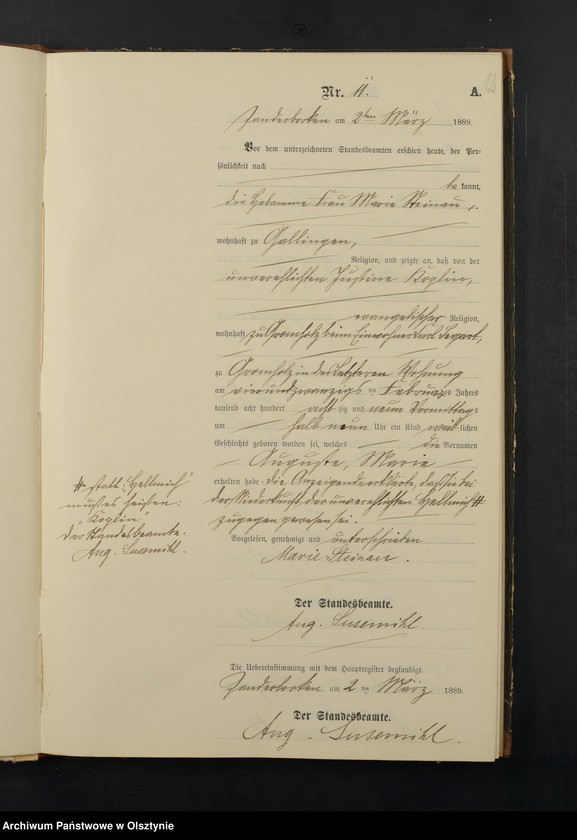 Nr. 11.
A.
Sanderborken am 2ten März 1889.
Vor dem unterzeichneten Standesbeamten erschien heute, der Per-
sönlichkeit nach
be kannt,
die Hebamme Frau Marie Steinau,
wohnhaft zu Gallingen,
Religion, und zeigte an, daß von der
unverehlichten Justine Koplin,
evangelischer Religion,
wohnhaft zu Gromholz beim Einwohner Carl
zu Gromholz in des Letzteren Wohnung
am vierundzwanzigs ten Februar des Jahres
tausend acht hundert acht zig und neun Vormittags
um halb neun Uhr ein Kind weib lichen
Geschlechts geboren worden sei, welches die Vornamen
Auguste, Marie
erhalten habe. Die Anzeigende erklärte, daß sie bei
der Niederkunft der unverehlichten Hellmich #
zugegen gewesen sei.
# statt: „Hellmich"
muß es heißen:
„Koplin"
Der Standesbeamte:
Aug. Susemihl.
Vorgelesen, genehmigt und unterschrieben
Marie Steinau.
Der Standesbeamte.
Aug. Susemihl.
Die Uebereinstimmung mit dem Hauptregister beglaubigt.
Sanderborken am 2 ten März 1889.
Der Standesbeamte.
Aug. Susemihl.
Archiwum Państwowe w Olsztynie